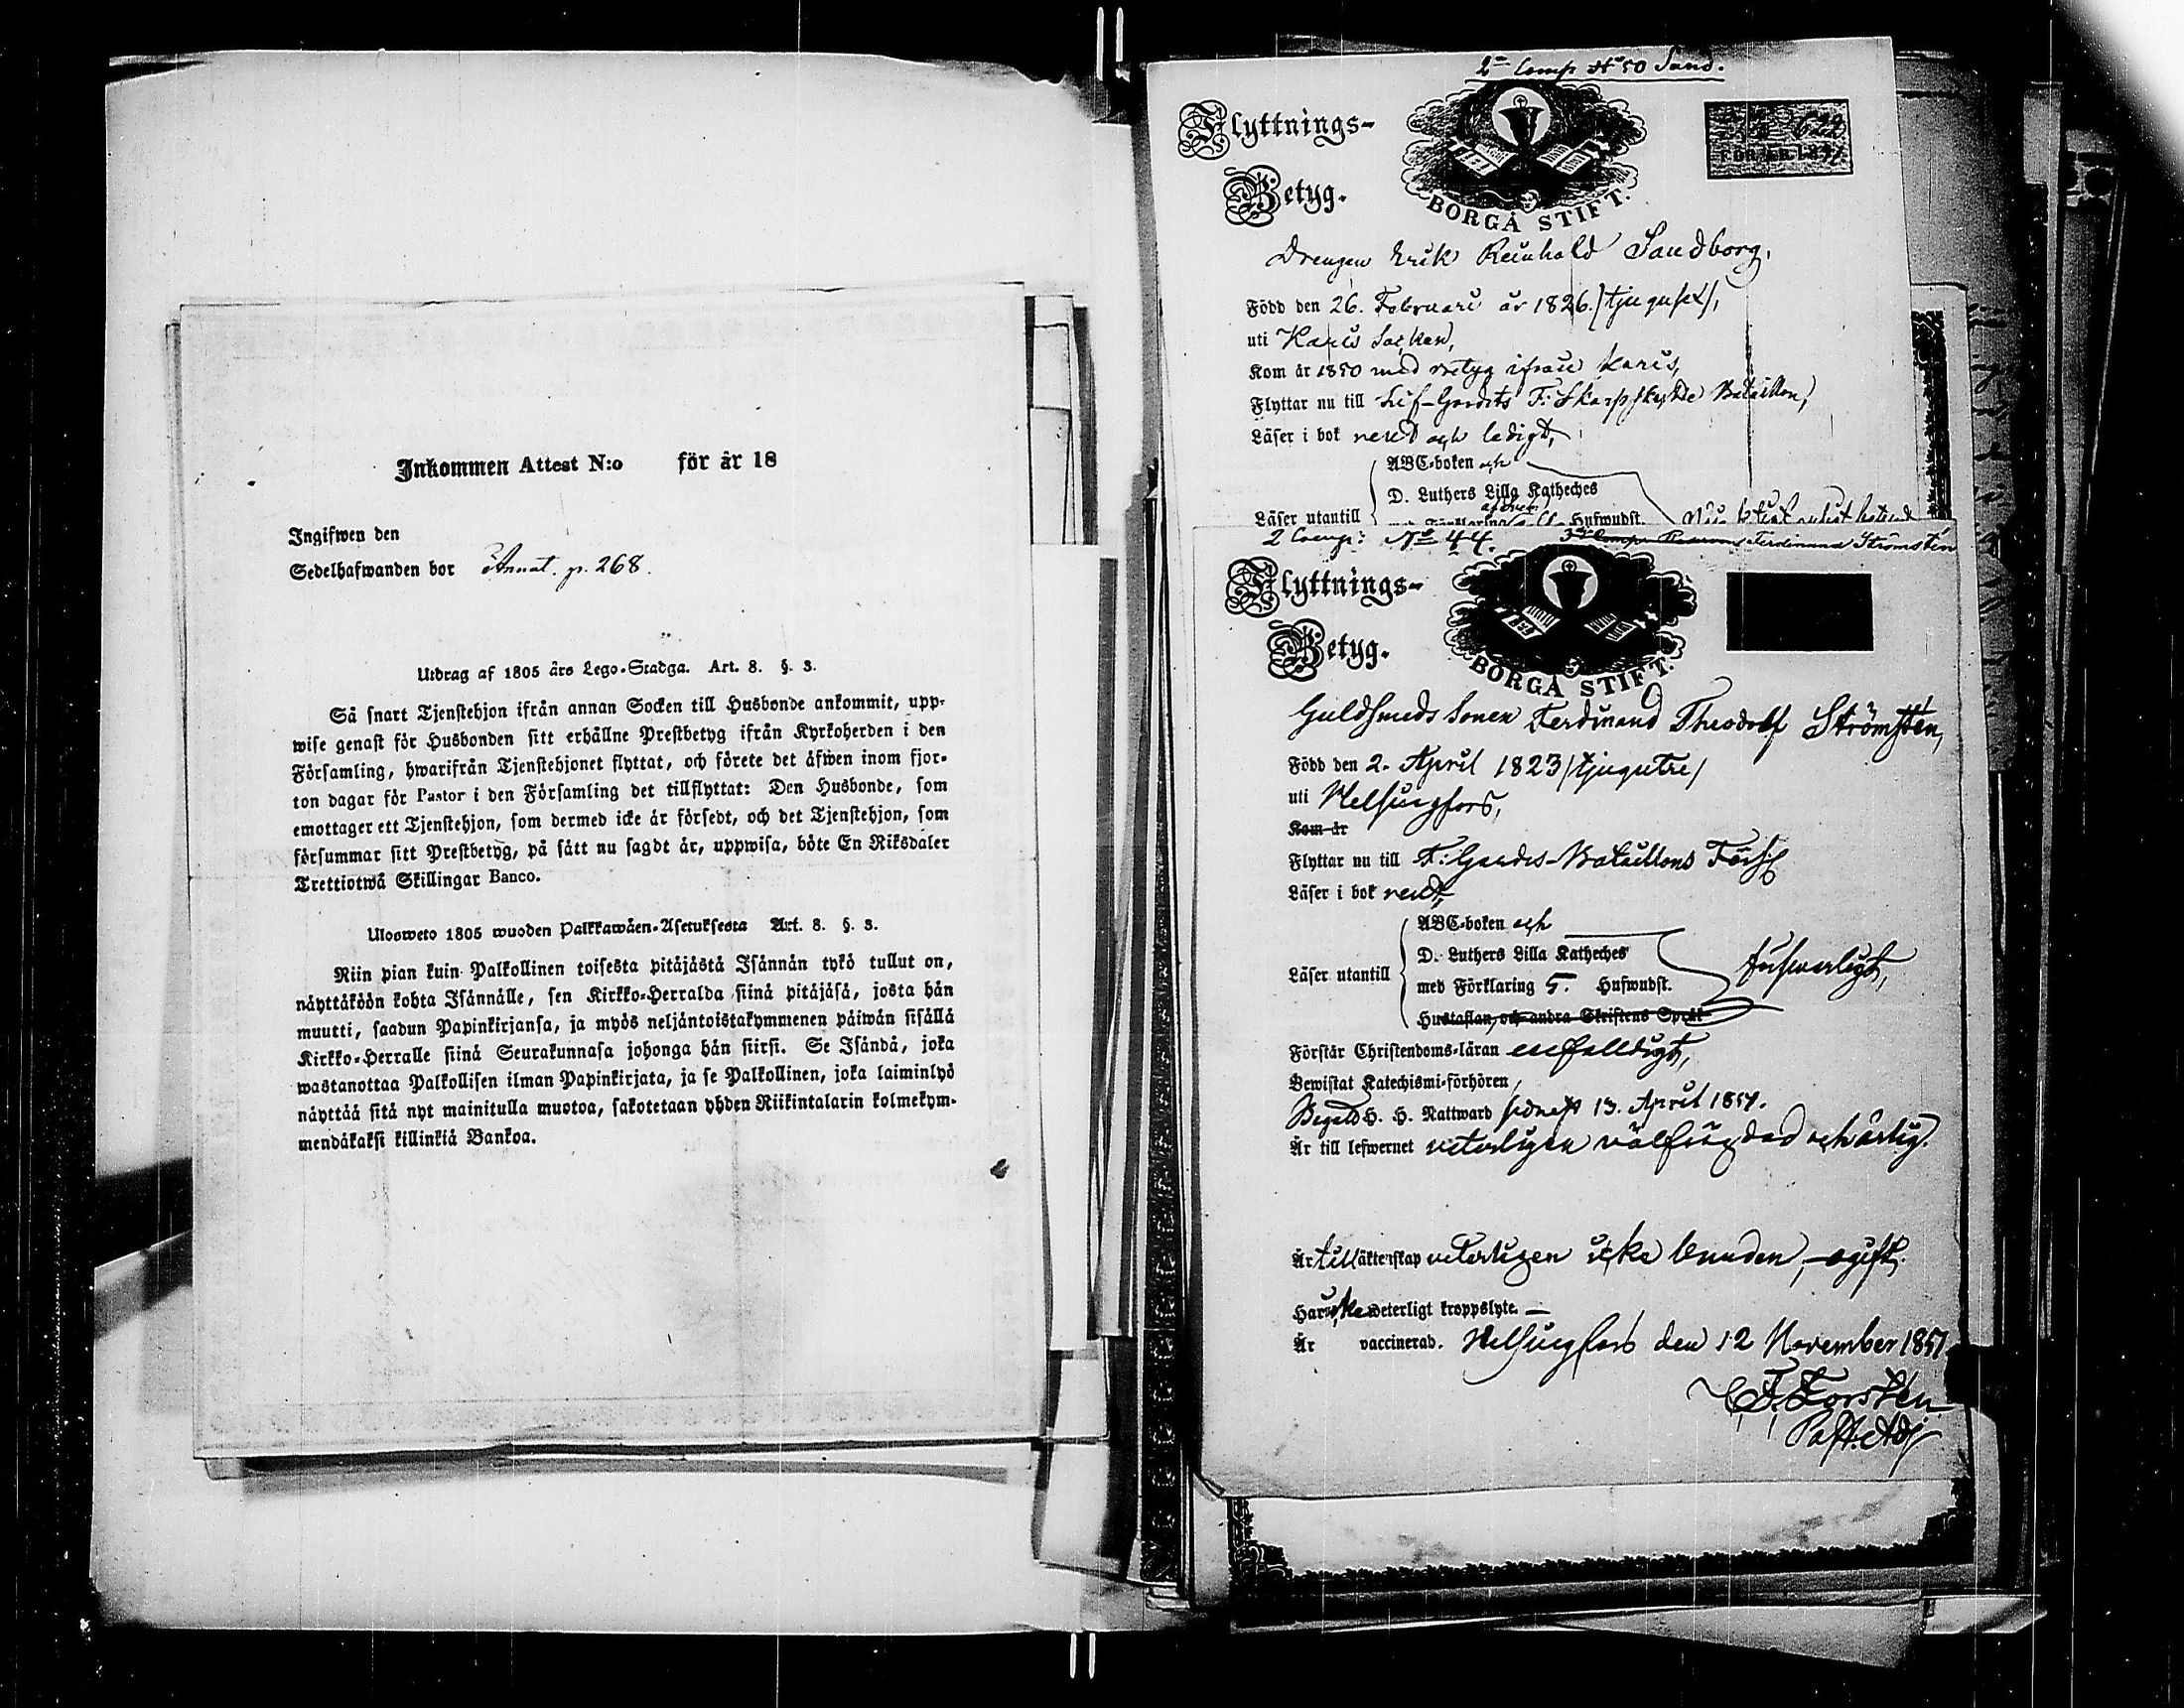 Inkommen Attest N:o för år 18
Ingifwen den
Sedelhafwanden bor Annat. p. 268.
Utdrag af 1805 års Lego-Stadga. Art. 8. §. 3.
Så snart Tjenstehjon ifrån annan Socken till Husbonde ankommit, upp-
wise genast för Husbonden sitt erhållne Prestbetyg ifrån Kyrkoherden i den
Församling, hwarifrån Tjenstehjonet flyttat, och förete det äfwen inom fjor-
ton dagar för Pastor i den Församling det tillflyttat: Den Husbonde, som
emottager ett Tjenstehjon, som dermed icke är försedt, och det Tjenstehjon, som
försummar sitt Prestbetyg, på sätt nu sagdt är, uppwisa, böte En Riksdaler
Trettiotwå Skillingar Banco.
Ulosweto 1805 wuoden Palkkawäen-Asetuksesta Art. 8. §. 3.
Niin pian kuin Palkollinen toisesta pitäjästä Isännän tykö tullut on,
näyttäköön kohta Isännälle, sen Kirkko-Herralda siinä pitäjäsä, josta hän
muutti, saadun Papinkirjansa, ja myös neljäntoistakymmenen päiwän sisällä
Kirkko-Herralle siinä Seurakunnasa johonga hän siirsi. Se Isändä, joka
wastanottaa Palkollisen ilman Papinkirjata, ja se Palkollinen, joka laiminlyö
näyttää sitä nyt mainitulla muotoa, sakotetaan yhden Riikintalarin kolmekym-
mendäkaksi killinkiä Bankoa.
2 Comp N:o 50 Sand.
Flyttnings-
Betyg.
BORGÅ STIFT.
622
FÖR ÅR 1851
Drengen Erik Reinhold Sandborg,
Född den 26. Februari år 1826. /tjugusex/,
uti Karis Socken,
Kom år 1850 med betyg ifrån Karis,
Flyttar nu till Lif-Gardets F: Skarpskytte Bataillon,
Läser i bok rent och ledigt,
ABC-boken och
D. Luthers Lilla Katheches
Läser utantill
Hufwudst.
2 Comp: N:o 44. Ferdinand Strömsten
Flyttnings-
Betyg.
BORGÅ STIFT.
Guldsmeds Sonen Ferdinand Theodolf Strömsten,
Född den 2. April 1823 /tjugutre/
uti Helsingfors,
Kom år
Flyttar nu till F: Gardes-Bataillons Förs:g
Läser i bok rent,
ABC-boken och
D. Luthers Lilla Katheches
Läser utantill
med Förklaring 5. Hufwudst. försvarligt,
Hustaflan, och andra Skriftens Språk
Förstår Christendoms-läran enfalldigt,
Bewistat Katechismi-förhören,
Begått H. H. Nattward sednast 13. April 1851.
Är till lefwernet veterligen välfrägdad och ärlig.
Är till äktenskap veterligen icke bunden, ogift.
Har icke weterligt kroppslyte. —
Är vaccinerad. Helsingfors den 12 November 1851
C. F. Forstén
Past. Adj